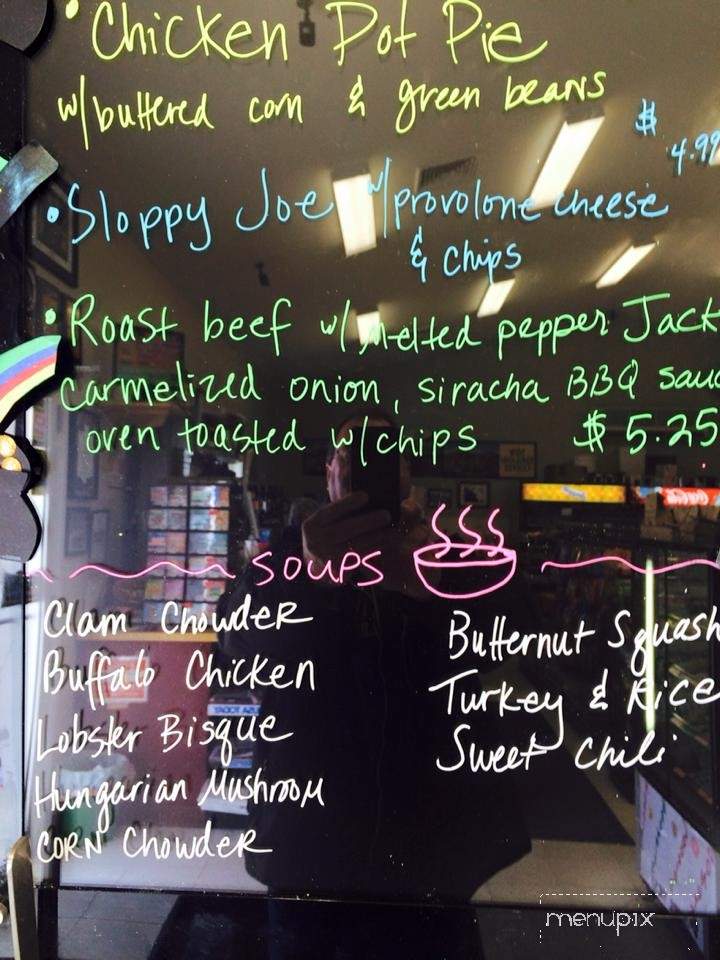 • Chicken Pot Pie
w/buttered corn & green beans
$ 4.99
• Sloppy Joe w/provolone cheese
& chips
• Roast beef w/melted pepper Jack
carmelized onion, siracha BBQ sauc
oven toasted w/chips $ 5.25
SOUPS
Clam Chowder
Buffalo Chicken
Lobster Bisque
Hungarian Mushroom
CORN Chowder
Butternut Squash
Turkey & Rice
Sweet Chili
Coca-Cola
menupix